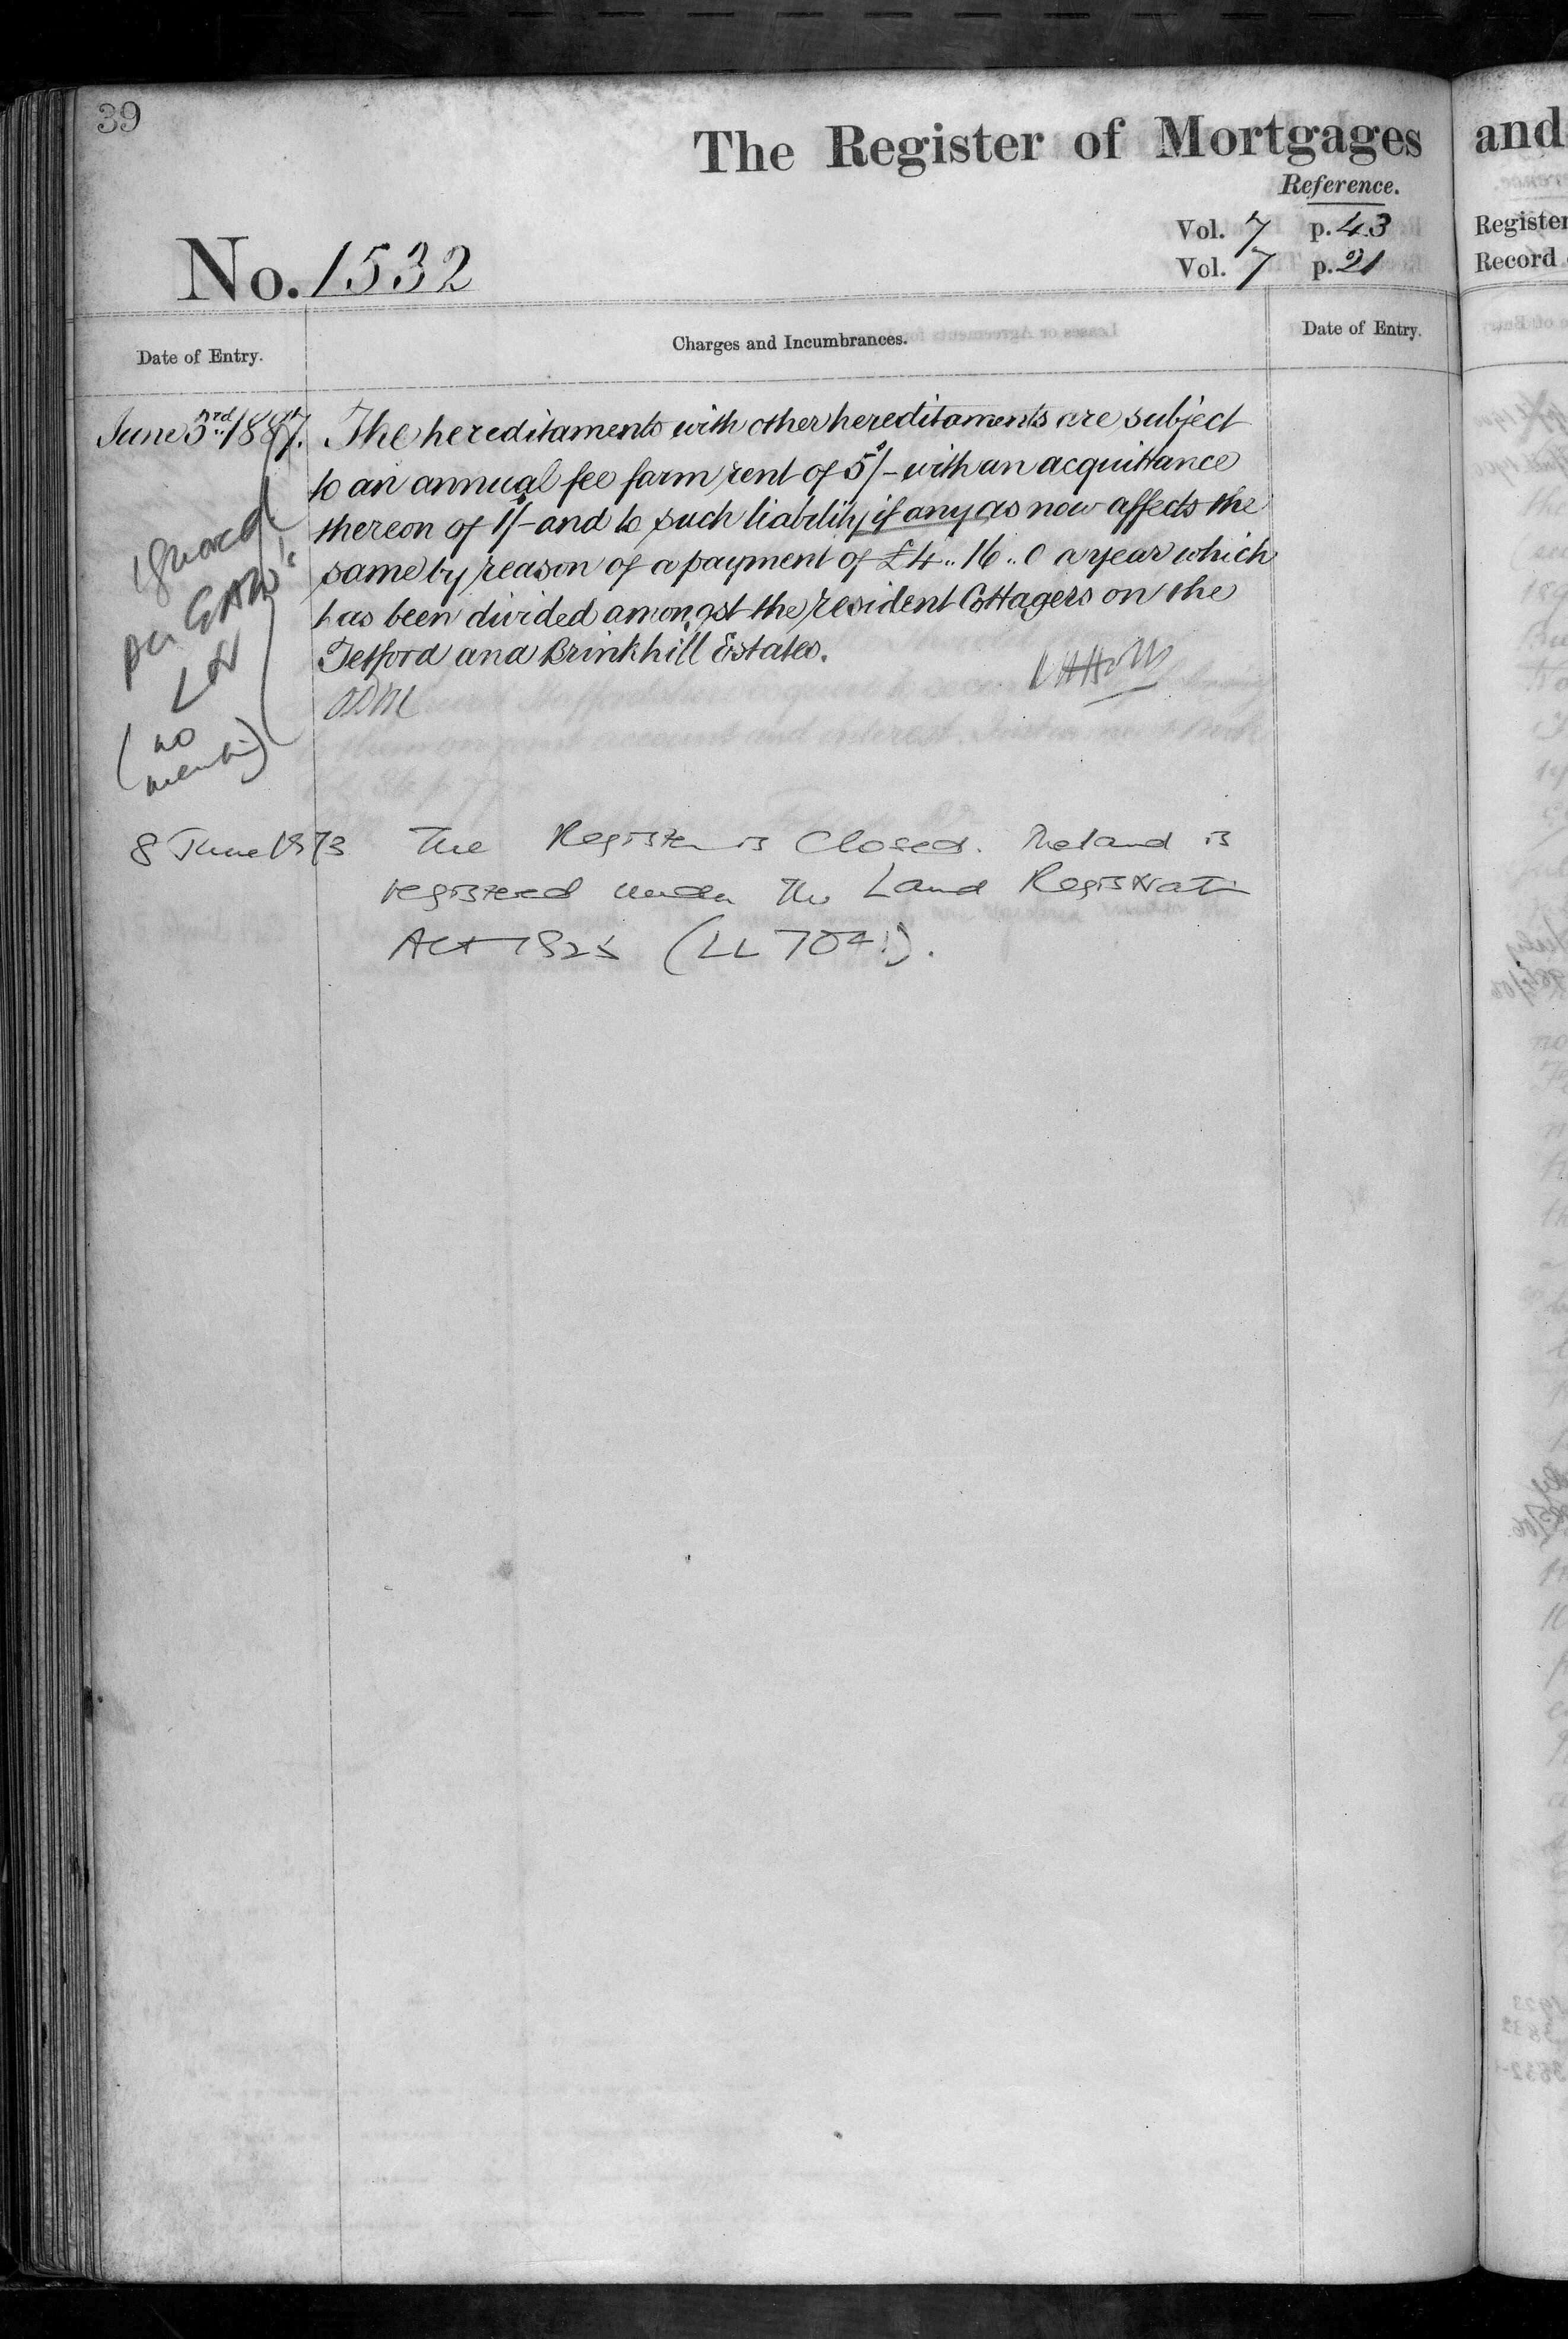 39
The Register of Mortgages
Reference.
Vol. 7 p. 43
Vol. 7 p. 21
No. 1532
Date of Entry.
Charges and Incumbrances.
Date of Entry.
June 3rd 1887. The hereditaments with other hereditaments are subject
to an annual fee farm rent of 5s/- with an acquittance
thereon of 1s/- and to such liability if any as now affects the
same by reason of a payment of £4..16..0 a year which
has been divided amongst the resident Cottagers on the
Tetford and Brinkhill Estates.
ignored
per
(no
8 June 1973 The Register is Closed. The land is
registered under the Land Registrati
Act 1925 (LL 704!).
and
Register
Record